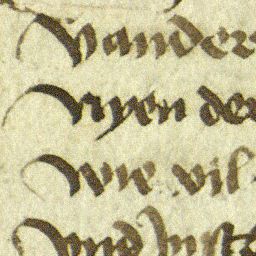 Wander
Nyen der
Wie vil
Vnd